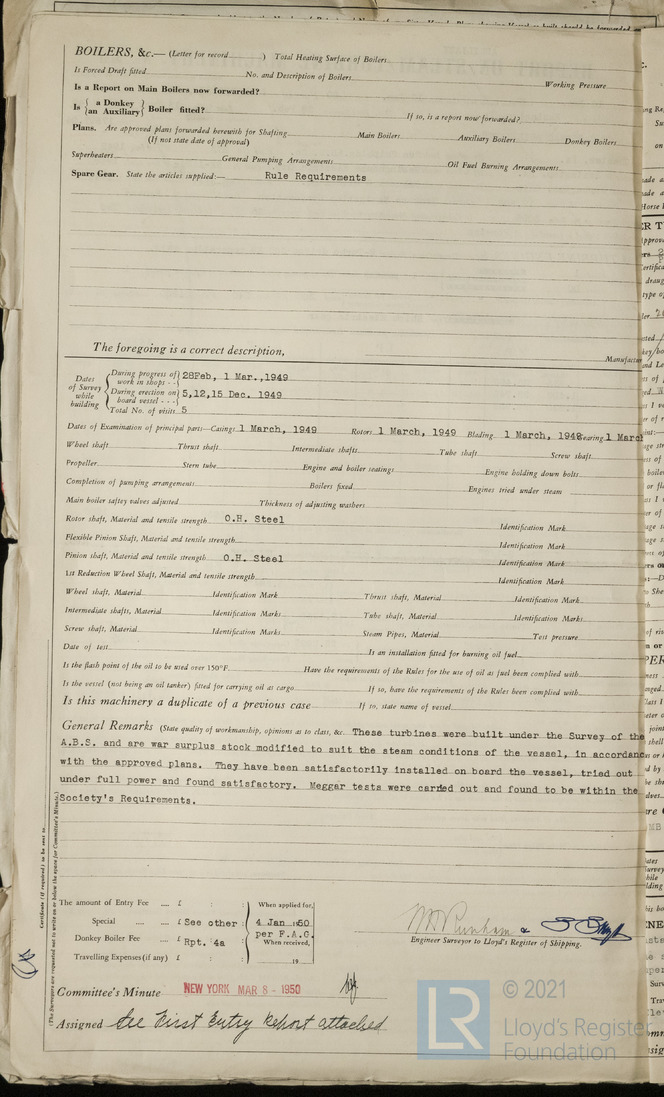 BOILERS, &c.— (Letter for record ) Total Heating Surface of Boilers
Is Forced Draft fitted No. and Description of Boilers Working Pressure
Is a Report on Main Boilers now forwarded?
Is { a Donkey / an Auxiliary } Boiler fitted? If so, is a report now forwarded?
Plans. Are approved plans forwarded herewith for Shafting Main Boilers Auxiliary Boilers Donkey Boilers
(If not state date of approval)
Superheaters General Pumping Arrangements Oil Fuel Burning Arrangements
Spare Gear. State the articles supplied:— Rule Requirements
The foregoing is a correct description,
Manufactur
Dates of Survey while building
During progress of work in shops - - 28Feb, 1 Mar.,1949
During erection on board vessel - - - 5,12,15 Dec. 1949
Total No. of visits 5
Dates of Examination of principal parts—Casings 1 March, 1949 Rotors 1 March, 1949 Blading 1 March, 1949 Gearing 1 March
Wheel shaft Thrust shaft Intermediate shafts Tube shaft Screw shaft
Propeller Stern tube Engine and boiler seatings Engine holding down bolts
Completion of pumping arrangements Boilers fixed Engines tried under steam
Main boiler saftey valves adjusted Thickness of adjusting washers
Rotor shaft, Material and tensile strength O.H. Steel Identification Mark
Flexible Pinion Shaft, Material and tensile strength Identification Mark
Pinion shaft, Material and tensile strength O.H. Steel Identification Mark
1st Reduction Wheel Shaft, Material and tensile strength Identification Mark
Wheel shaft, Material Identification Mark Thrust shaft, Material Identification Mark
Intermediate shafts, Material Identification Marks Tube shaft, Material Identification Mark
Screw shaft, Material Identification Marks Steam Pipes, Material Test pressure
Date of test Is an installation fitted for burning oil fuel
Is the flash point of the oil to be used over 150°F. Have the requirements of the Rules for the use of oil as fuel been complied with
Is the vessel (not being an oil tanker) fitted for carrying oil as cargo If so, have the requirements of the Rules been complied with
Is this machinery a duplicate of a previous case If so, state name of vessel
General Remarks (State quality of workmanship, opinions as to class, &c. These turbines were built under the Survey of the
A.B.S. and are war surplus stock modified to suit the steam conditions of the vessel, in accordanc
with the approved plans. They have been satisfactorily installed on board the vessel, tried out
under full power and found satisfactory. Meggar tests were carried out and found to be within the
Society's Requirements.
Certificate (if required) to be sent to
(The Surveyors are requested not to write on or below the space for Committee's Minute.)
The amount of Entry Fee .... £ : : When applied for,
Special .... .... £ See other : 4 Jan 1950
per F.A.G.
Donkey Boiler Fee .... £ Rpt. 4a When received,
Travelling Expenses (if any) £ : : 19
Engineer Surveyor to Lloyd's Register of Shipping.
Committee's Minute NEW YORK MAR 8 - 1950
Assigned See First Entry Report attached
LR © 2021
Lloyd's Register
Foundation